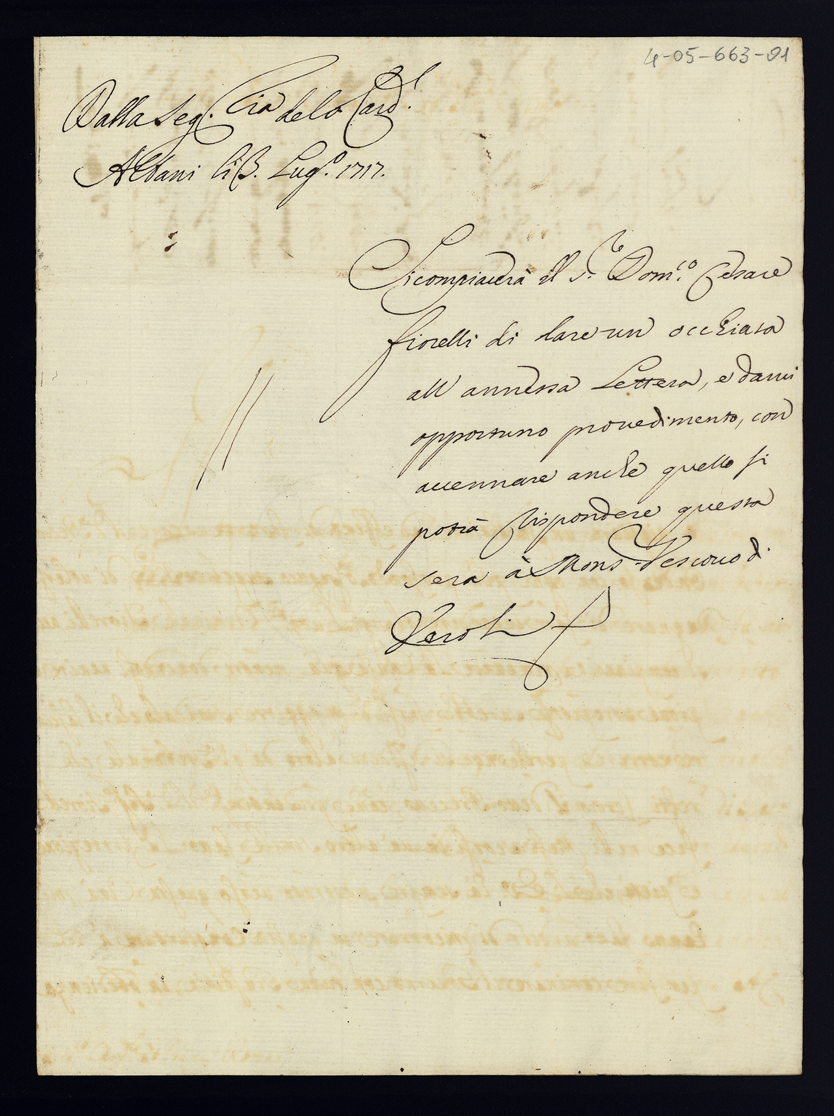 4-05-663-01
Dalla Seg.ria del S.r Card.l
Albani li 3. Lug.o 1717.
Si compiacerà il S.re Dom.co Cesare
Fiorelli di dare un occhiata
all'annessa Lettera, e darvi
opportuno provedimento, con
accennare anche quello si
potrà rispondere questa
sera à Mons.r Vescovo di
Veroli